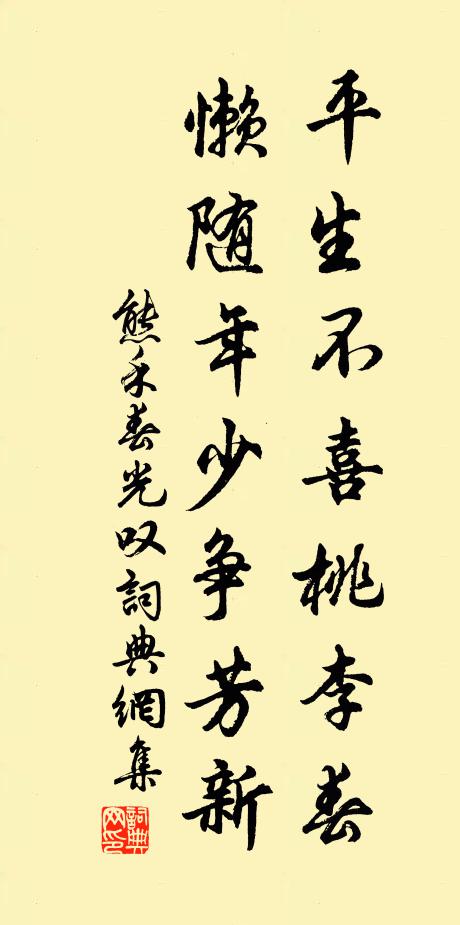 平生不喜桃李春
懒随年少争芳新
熊禾春光叹詞典網集
詞典网印